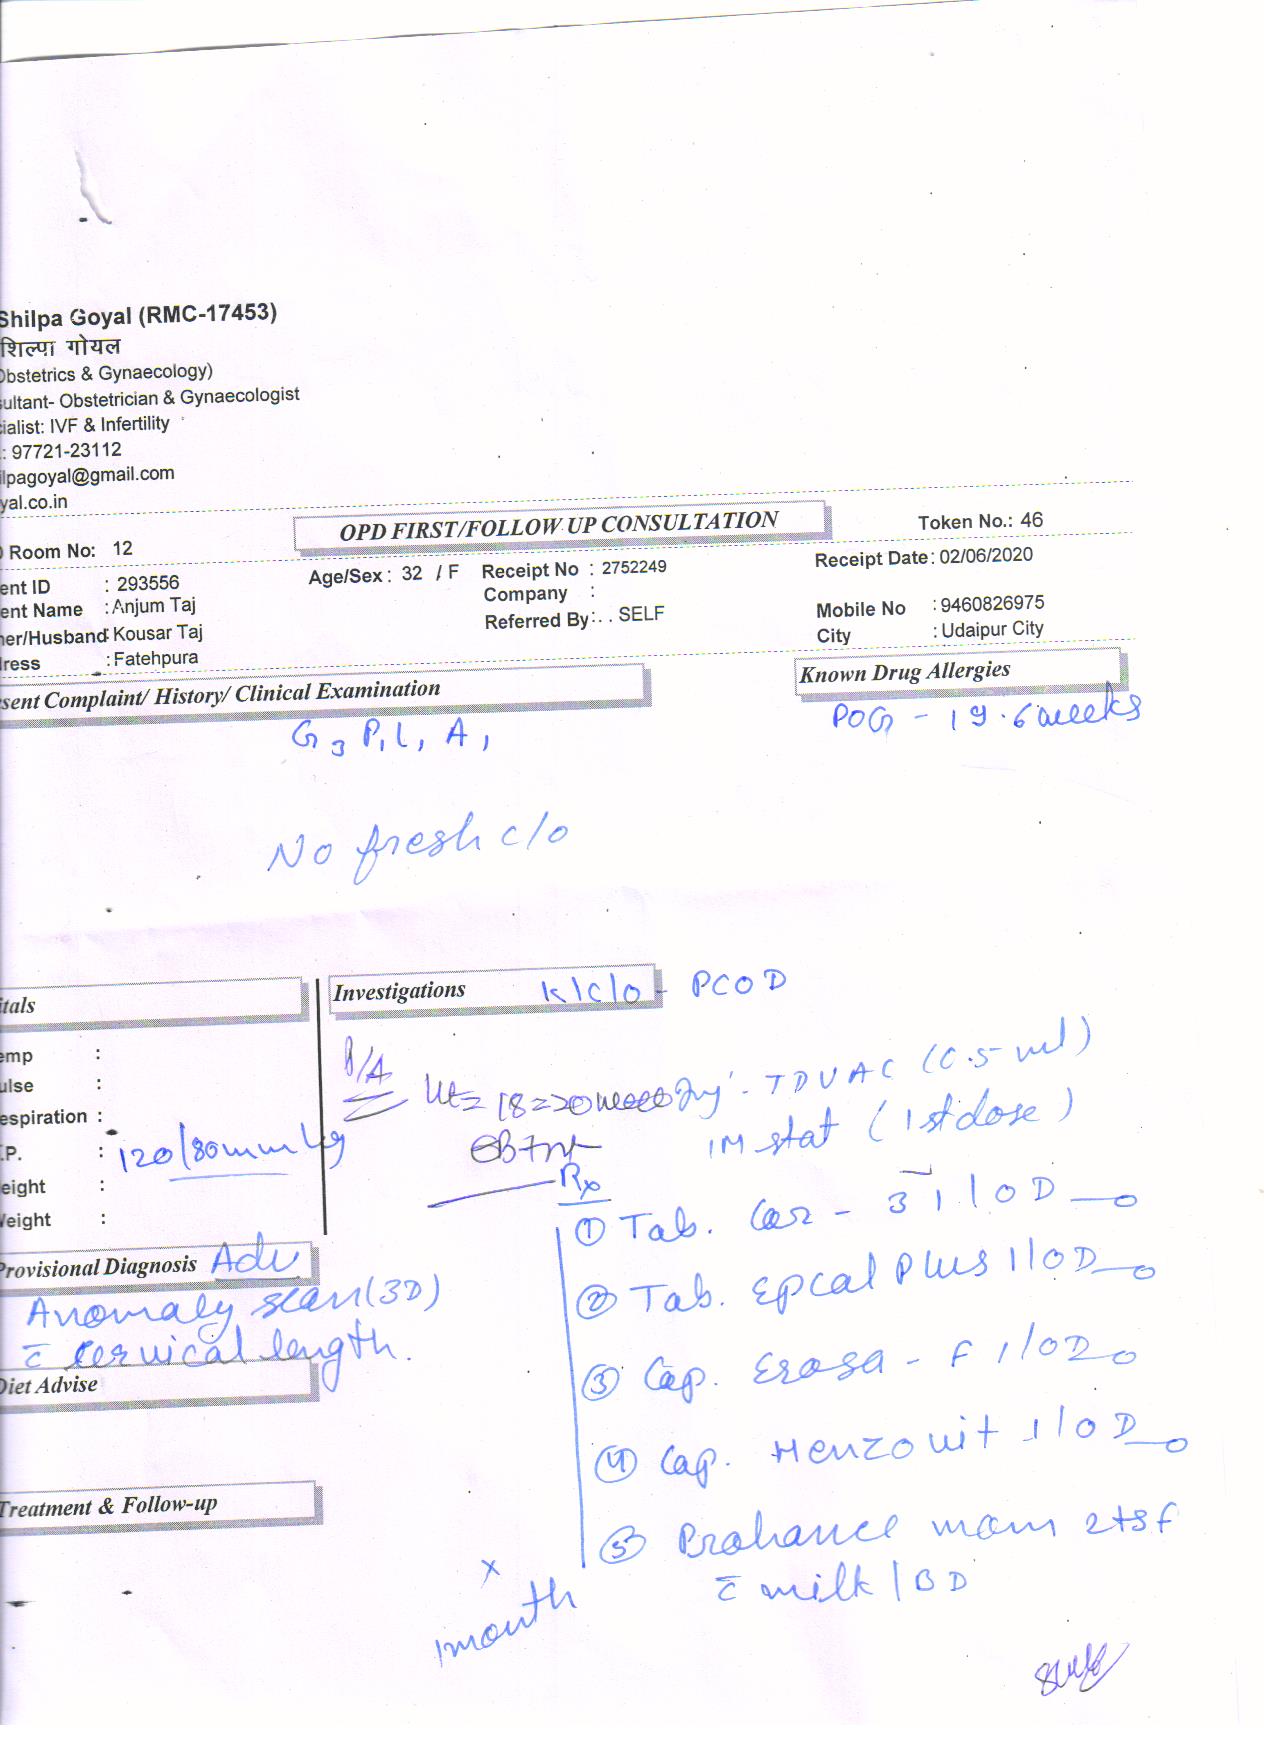 Shilpa Goyal (RMC-17453)
शिल्पा गोयल
Obstetrics & Gynaecology)
sultant- Obstetrician & Gynaecologist
cialist: IVF & Infertility
: 97721-23112
ilpagoyal@gmail.com
yal.co.in
OPD FIRST/FOLLOW UP CONSULTATION
Token No.: 46
Room No: 12
ent ID : 293556
Age/Sex : 32 / F
Receipt No : 2752249
Receipt Date : 02/06/2020
ent Name : Anjum Taj
Company :
Mobile No : 9460826975
her/Husband : Kousar Taj
Referred By : . . SELF
City : Udaipur City
dress : Fatehpura
sent Complaint/ History/ Clinical Examination
Known Drug Allergies
G3 P1 L1 A1
POG - 19.6 weeks
No fresh c/o
itals
Investigations
K/C/O - PCOD
emp :
ulse :
espiration :
.P. : 120/80mmHg
eight :
Weight :
P/A
Ut = 18-20 weeks
Inj. TDVAC (0.5 ml)
IM stat (1st dose)
Rx
① Tab. - 3 1/OD
② Tab. Epcal Plus 1/OD
③ Cap. Erosa - F 1/OD
④ Cap. Menzovit 1/OD
⑤ Prohance mom 2tsf
c̄ milk / BD
x
1month
Provisional Diagnosis
Adv
Anomaly scan (3D)
c̄ cervical length.
Diet Advise
Treatment & Follow-up